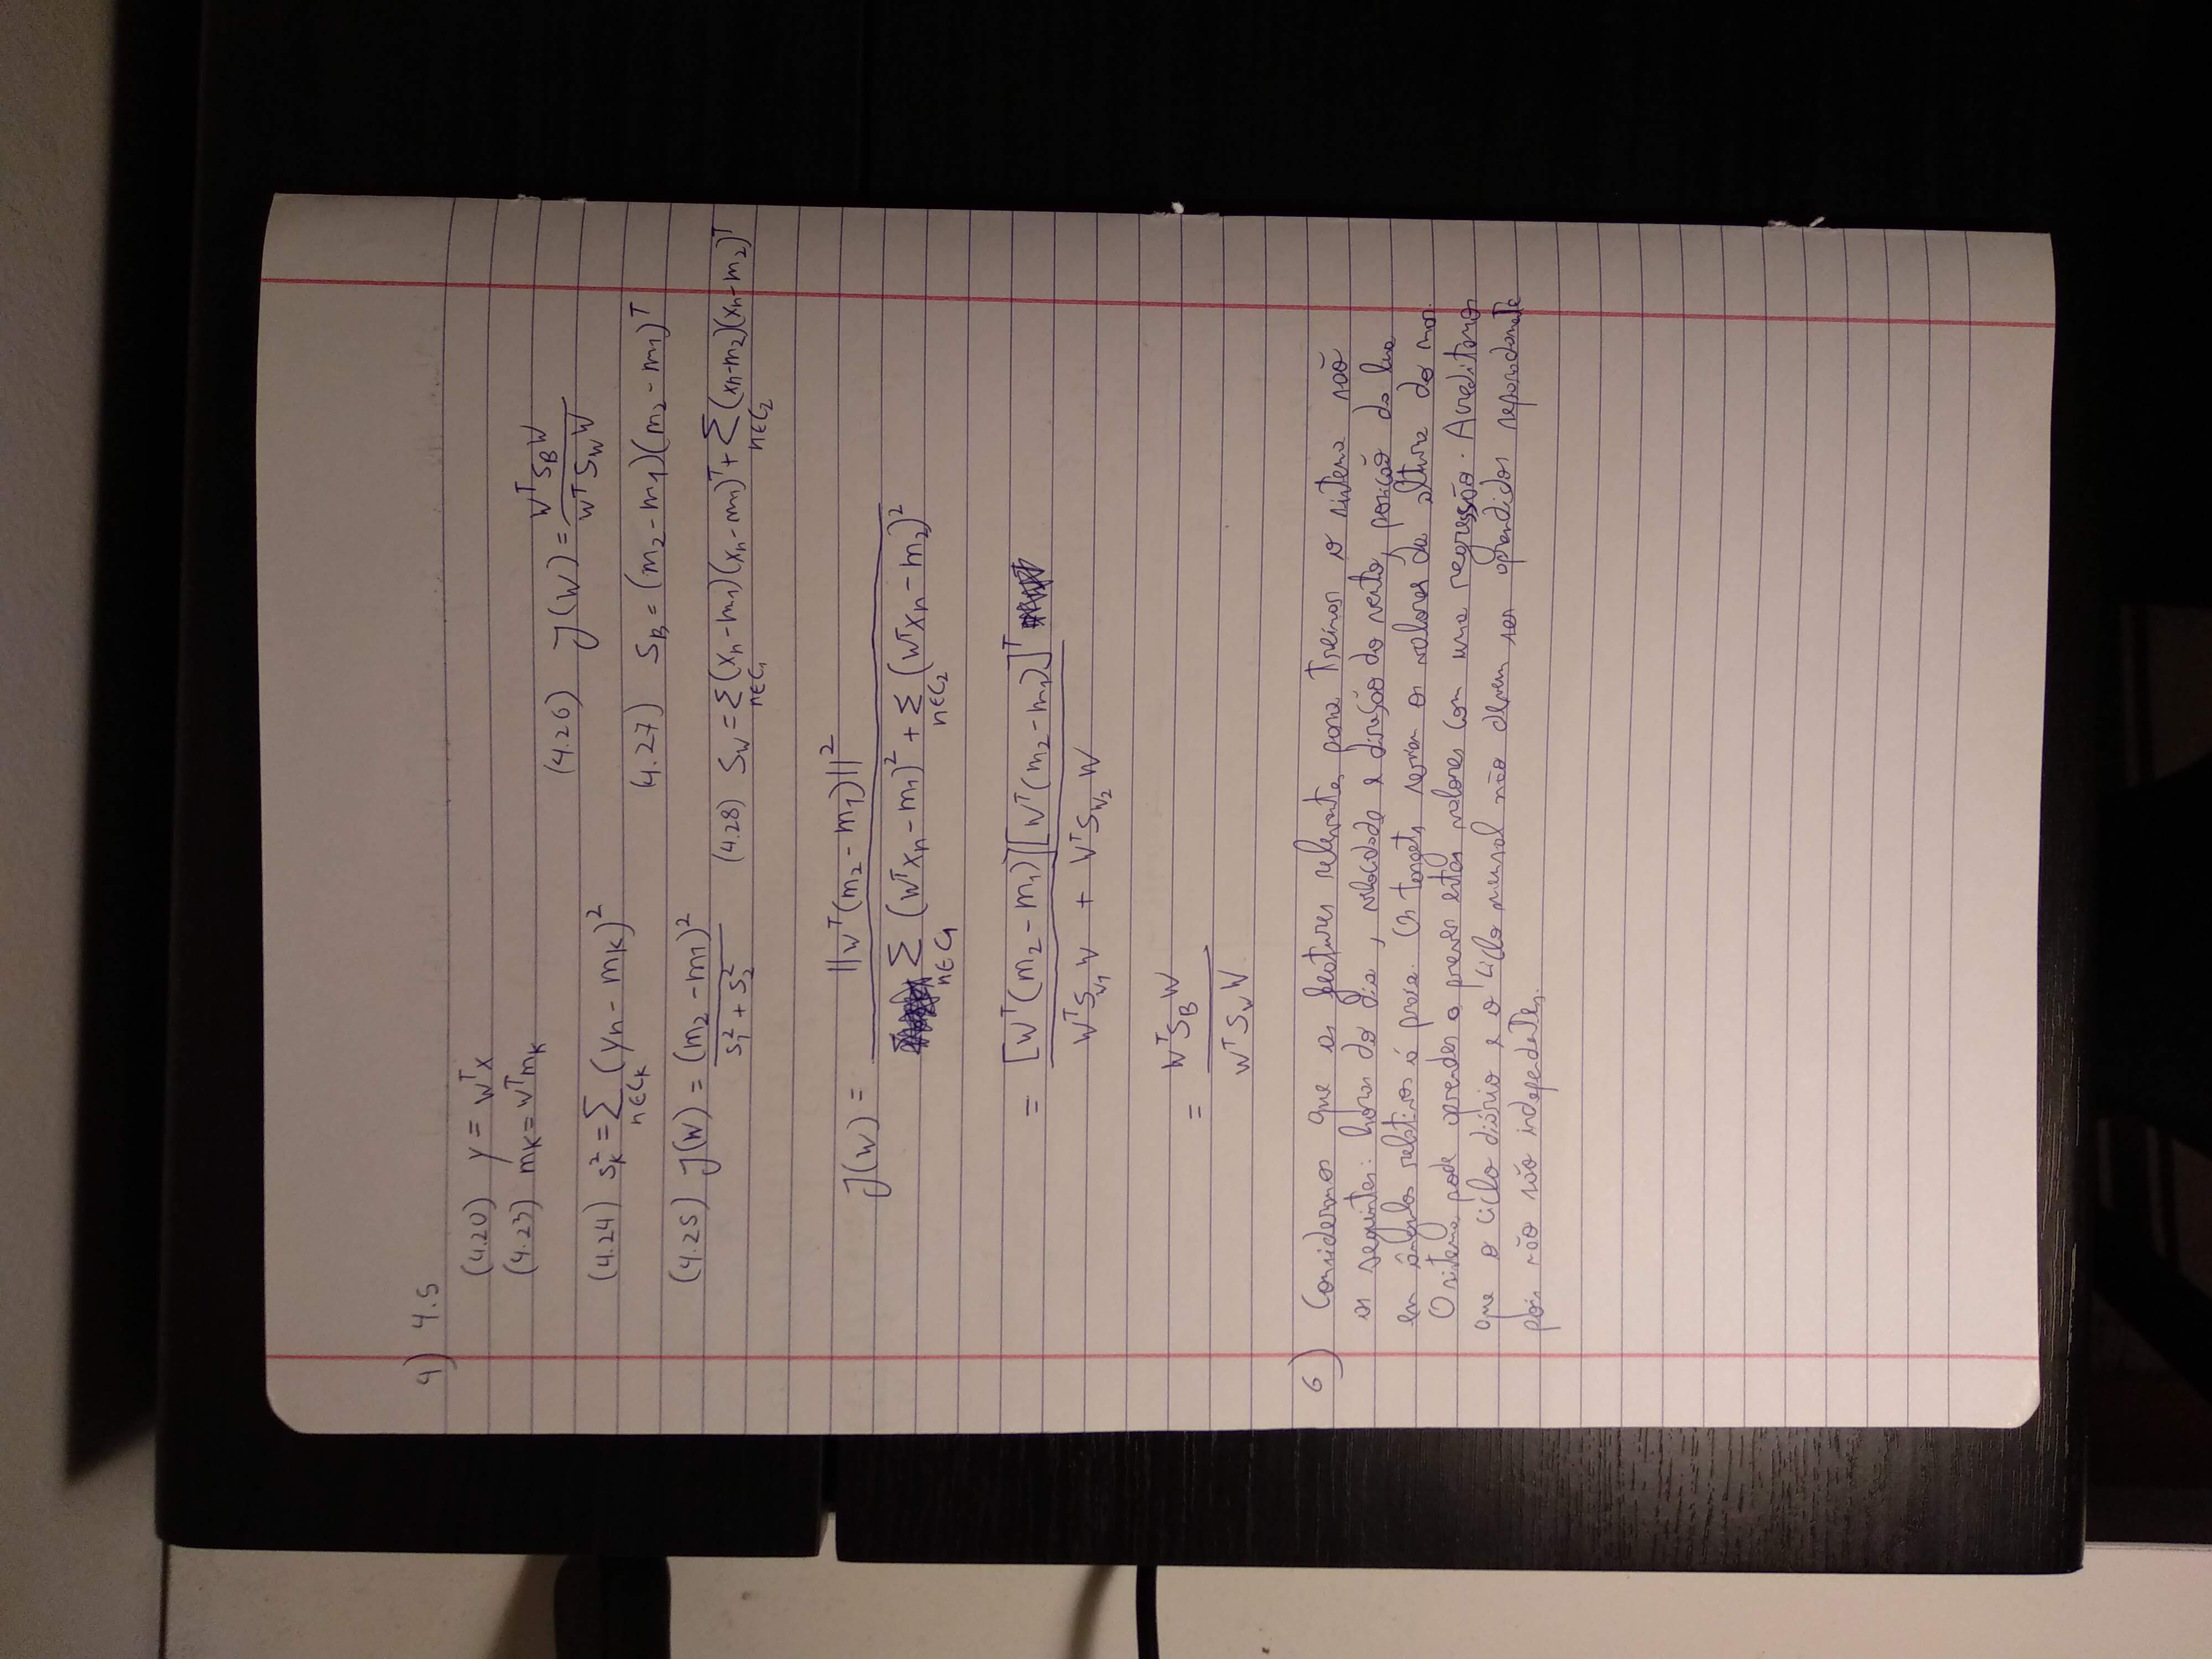 4) 4.5
(4.20) y = wᵀx
(4.23) mₖ = wᵀmₖ
(4.24) sₖ² = Σ_{n∈Cₖ} (yₙ - mₖ)²
(4.25) J(w) = (m₂ - m₁)² / (s₁² + s₂²)
(4.26) J(w) = wᵀS_B w / wᵀS_W w
(4.27) S_B = (m₂ - m₁)(m₂ - m₁)ᵀ
(4.28) S_W = Σ_{n∈C₁} (xₙ - m₁)(xₙ - m₁)ᵀ + Σ_{n∈C₂} (xₙ - m₂)(xₙ - m₂)ᵀ
J(w) = ||wᵀ(m₂ - m₁)||² / Σ_{n∈C₁} (wᵀxₙ - m₁)² + Σ_{n∈C₂} (wᵀxₙ - m₂)²
= [wᵀ(m₂ - m₁)][wᵀ(m₂ - m₁)]ᵀ / wᵀS_{W₁}w + wᵀS_{W₂}w
= wᵀS_B w / wᵀS_W w
6) Consideramos que as features relevantes para treinar o sistema são
as seguintes: horas do dia, velocidade e direção do vento, posição da lua
em ângulos relativos à praia. Os targets seriam os valores da altura do mar.
O sistema pode aprender a prever estes valores com uma regressão. Acreditamos
que o ciclo diário e o ciclo mensal não devem ser aprendidos separadamente
pois não são independentes.